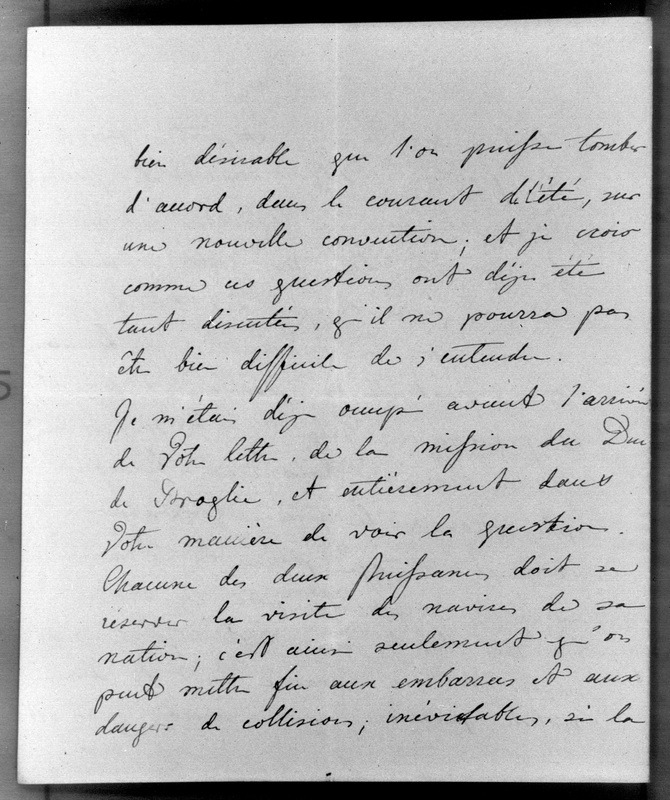 bien désirable que l'on puisse tomber
d'accord, dans le courant de l'été, sur
une nouvelle convention; et je crois
comme ces questions ont déjà été
tant discutées, qu'il ne pourra pas
être bien difficile de s'entendre.
Je m'étais déjà occupé avant l'arrivée
de Votre lettre, de la mission du Duc
de Broglie, et entièrement dans
Votre manière de voir la question.
Chacune des deux Puissances doit se
réserver la visite des navires de sa
nation; c'est ainsi seulement qu'on
peut mettre fin aux embarras et aux
dangers de collisions, inévitables, si la